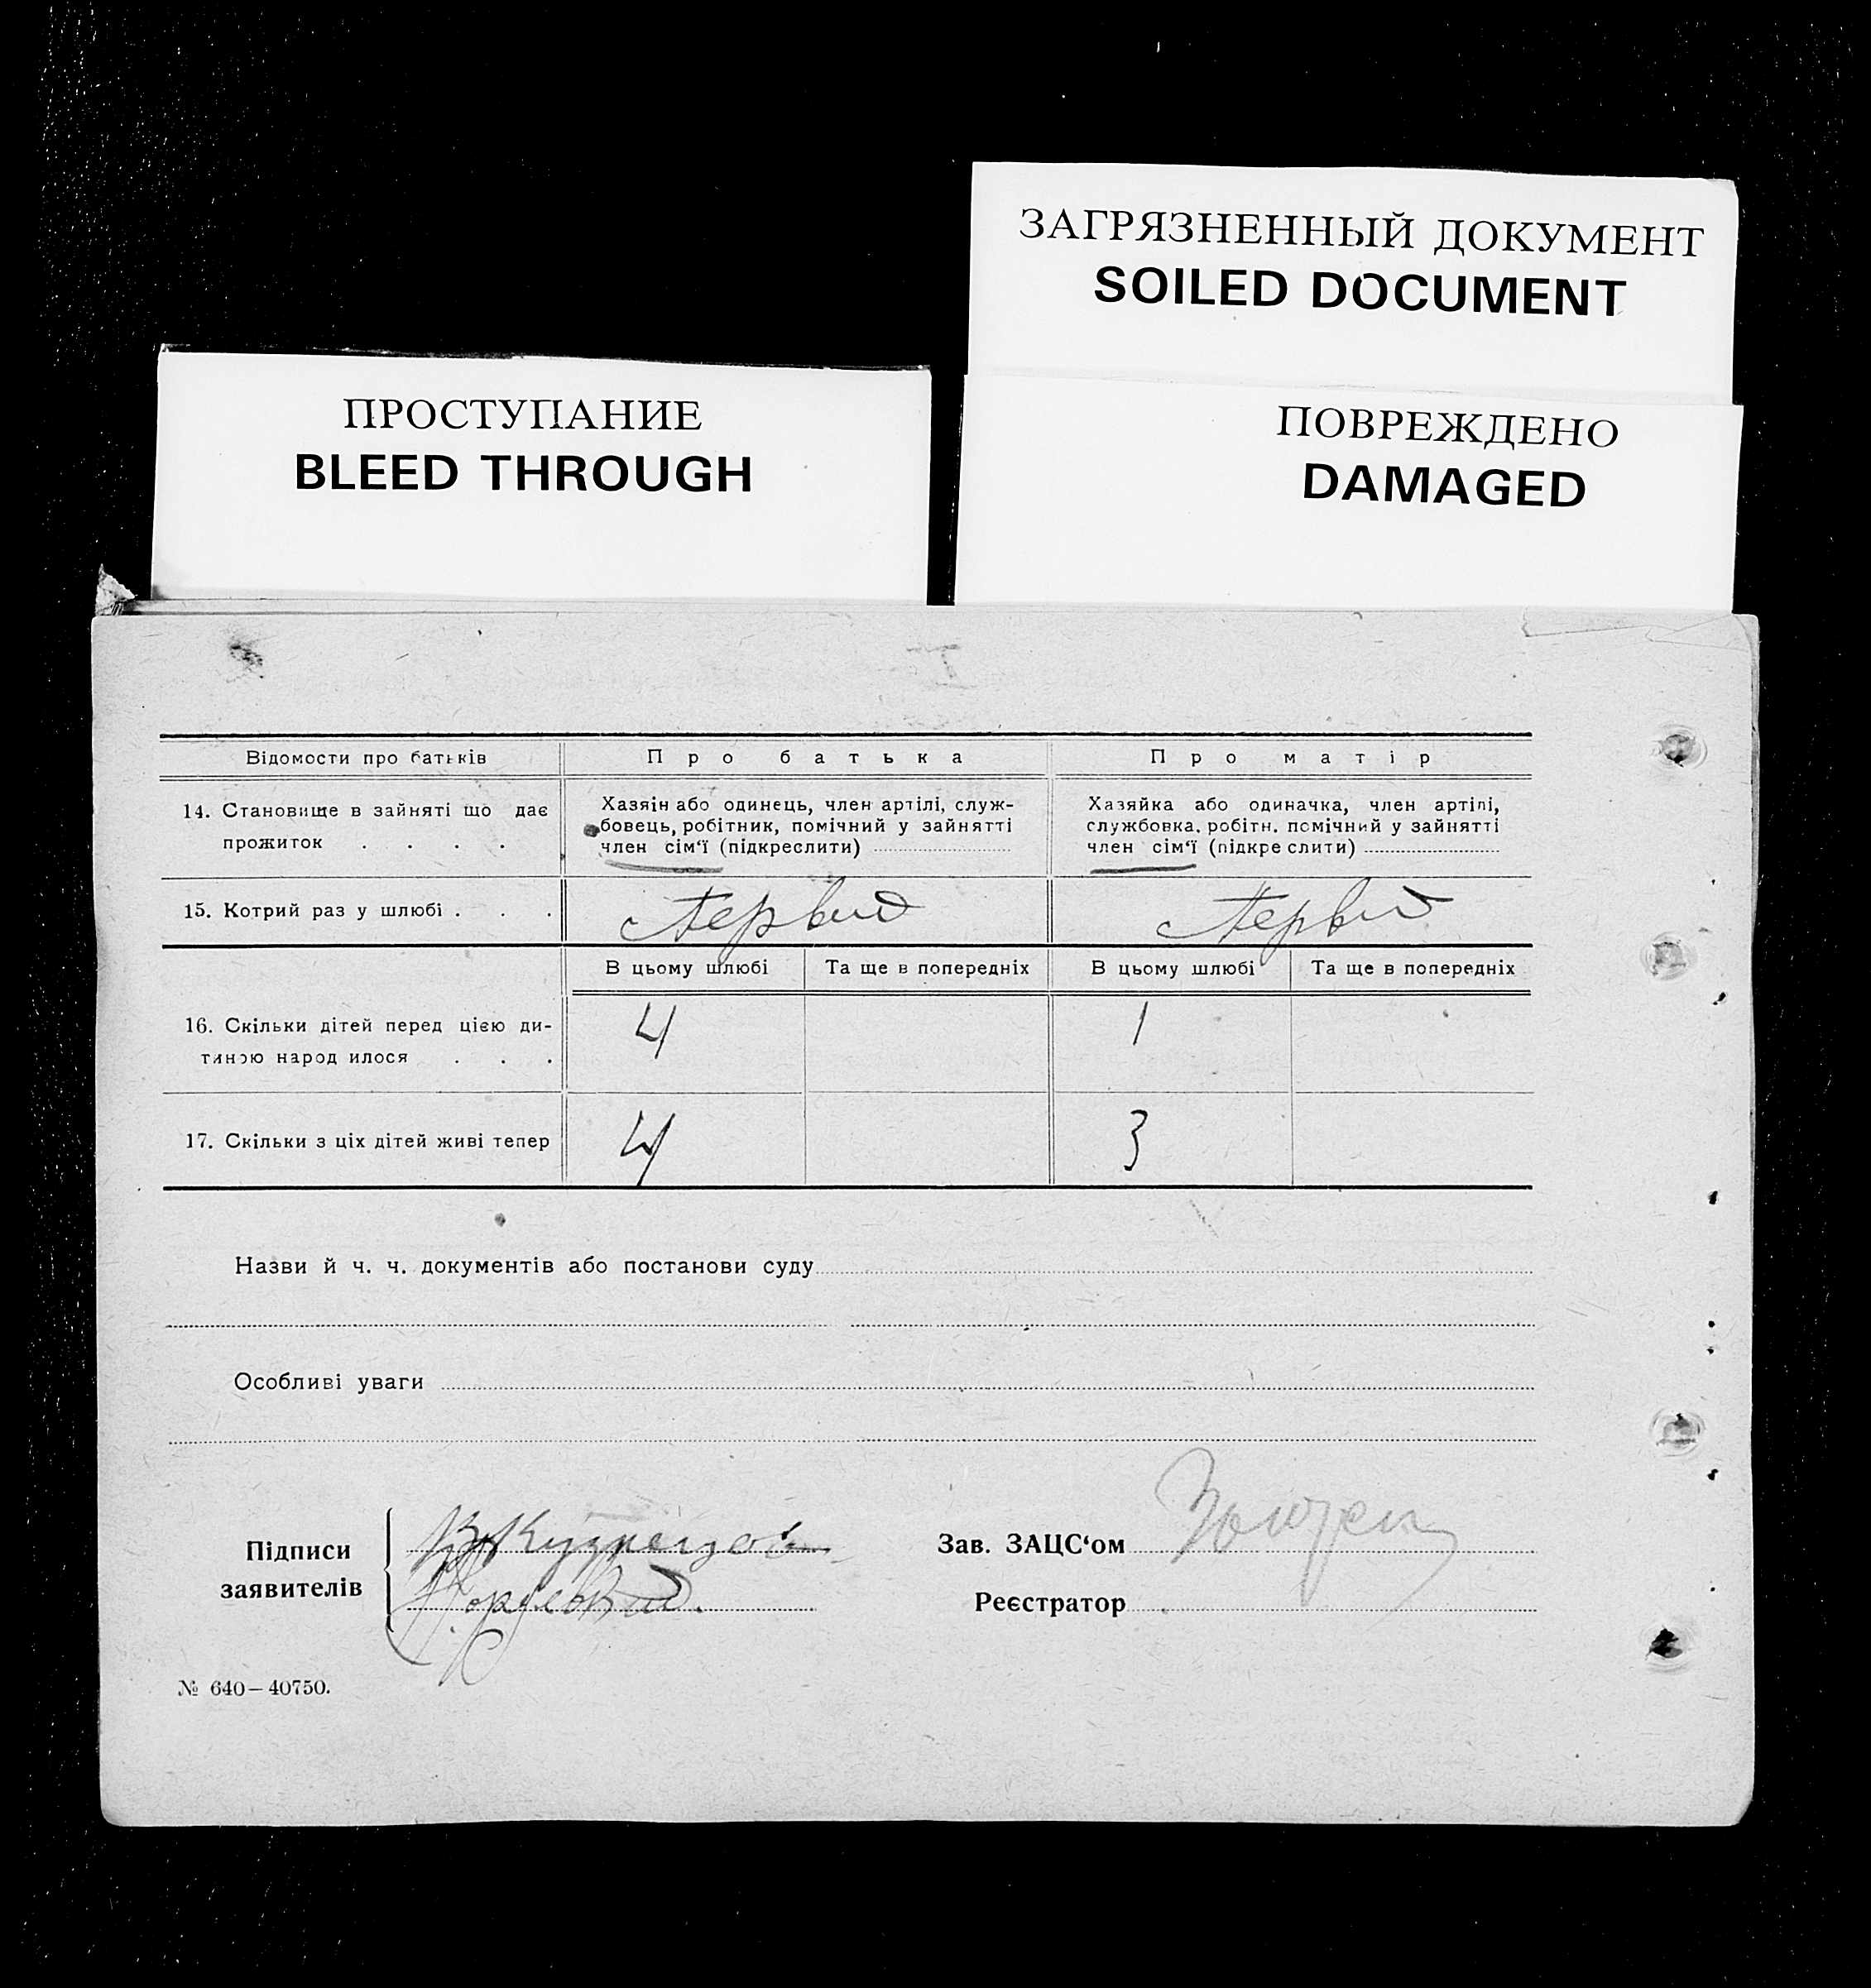 ЗАГРЯЗНЕННЫЙ ДОКУМЕНТ
SOILED DOCUMENT
ПРОСТУПАНИЕ
BLEED THROUGH
ПОВРЕЖДЕНО
DAMAGED
Відомости про батьків
Про батька
Про матір
14. Становище в зайняті що дає
прожиток . . . .
Хазяін або одинець, член артілі, служ-
бовець, робітник, помічний у зайнятті
член сім‘ї (підкреслити)
Хазяйка або одиначка, член артілі,
службовка. робітн. помічний у зайнятті
член сім‘ї (підкреслити)
15. Котрий раз у шлюбі . . .
Первий
Первий
В цьому шлюбі
Та ще в попередніх
В цьому шлюбі
Та ще в попередніх
16. Скільки дітей перед цією ди-
тиною народилося . . .
4
1
17. Скільки з ціх дітей живі тепер
4
3
Назви й ч. ч. документів або постанови суду
Особливі уваги
Підписи
заявителів
Кузнецов
Зав. ЗАЦС‘ом
Реєстратор
№ 640–40750.